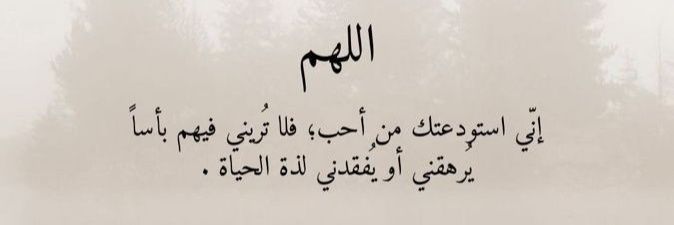 اللهم
إنّي استودعتك من أحب؛ فلا تُريني فيهم بأساً
يُرهقني أو يُفقدني لذة الحياة .